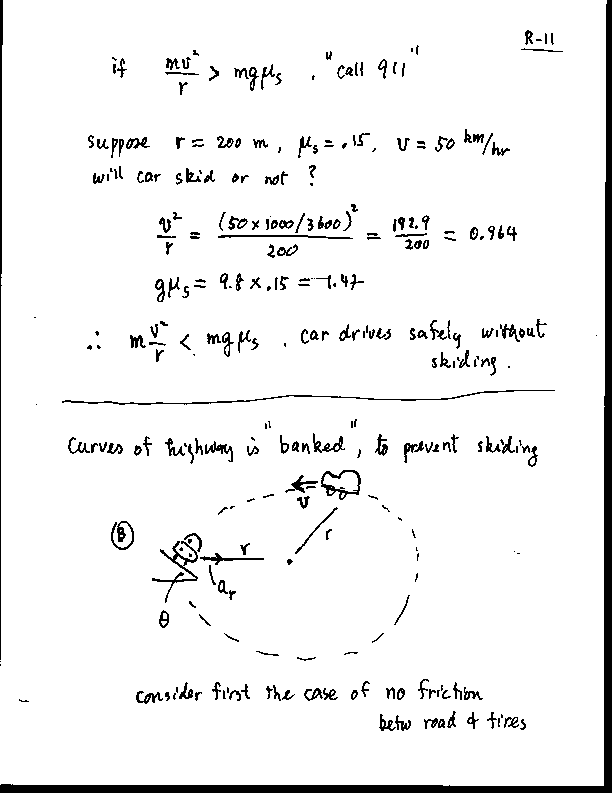 R-11
if mv²/r > mgμs . "call 911"
suppose r = 200 m , μs = .15, v = 50 km/hr
will car skid or not ?
v²/r = (50 × 1000/3600)²/200 = 192.9/200 = 0.964
gμs = 9.8 × .15 = 1.47
∴ m v²/r < mgμs . car drives safely without
skiding .
Curves of highway is "banked", to prevent skiding
v
B
r
r
ar
θ
consider first the case of no friction
betw road & tires